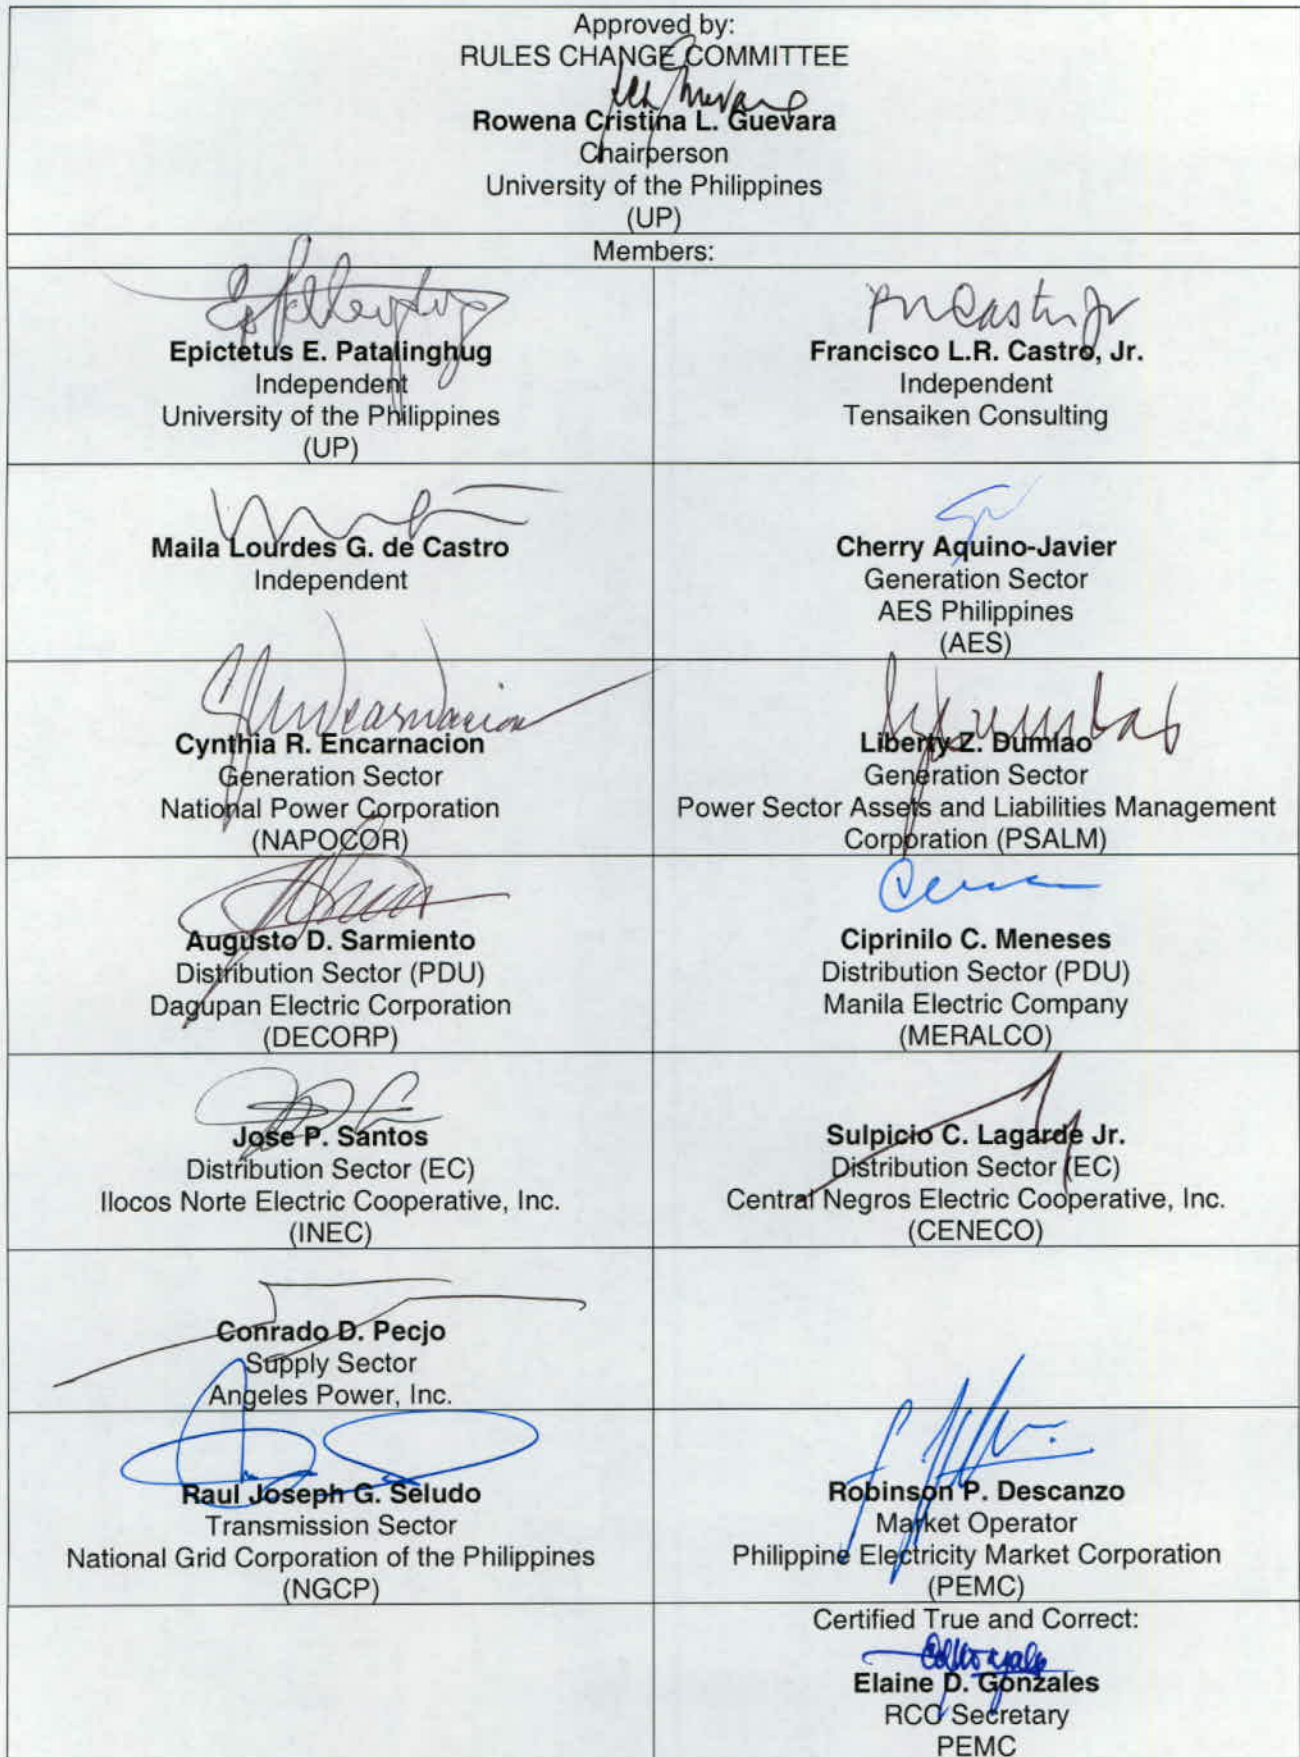 Approved by:
RULES CHANGE COMMITTEE
Rowena Cristina L. Guevara
Chairperson
University of the Philippines
(UP)
Members:
Epictetus E. Patalinghug
Independent
University of the Philippines
(UP)
Francisco L.R. Castro, Jr.
Independent
Tensaiken Consulting
Maila Lourdes G. de Castro
Independent
Cherry Aquino-Javier
Generation Sector
AES Philippines
(AES)
Cynthia R. Encarnacion
Generation Sector
National Power Corporation
(NAPOCOR)
Liberty Z. Dumlao
Generation Sector
Power Sector Assets and Liabilities Management
Corporation (PSALM)
Augusto D. Sarmiento
Distribution Sector (PDU)
Dagupan Electric Corporation
(DECORP)
Ciprinilo C. Meneses
Distribution Sector (PDU)
Manila Electric Company
(MERALCO)
Jose P. Santos
Distribution Sector (EC)
Ilocos Norte Electric Cooperative, Inc.
(INEC)
Sulpicio C. Lagarde Jr.
Distribution Sector (EC)
Central Negros Electric Cooperative, Inc.
(CENECO)
Conrado D. Pecjo
Supply Sector
Angeles Power, Inc.
Raul Joseph G. Seludo
Transmission Sector
National Grid Corporation of the Philippines
(NGCP)
Robinson P. Descanzo
Market Operator
Philippine Electricity Market Corporation
(PEMC)
Certified True and Correct:
Elaine D. Gonzales
RCC Secretary
PEMC